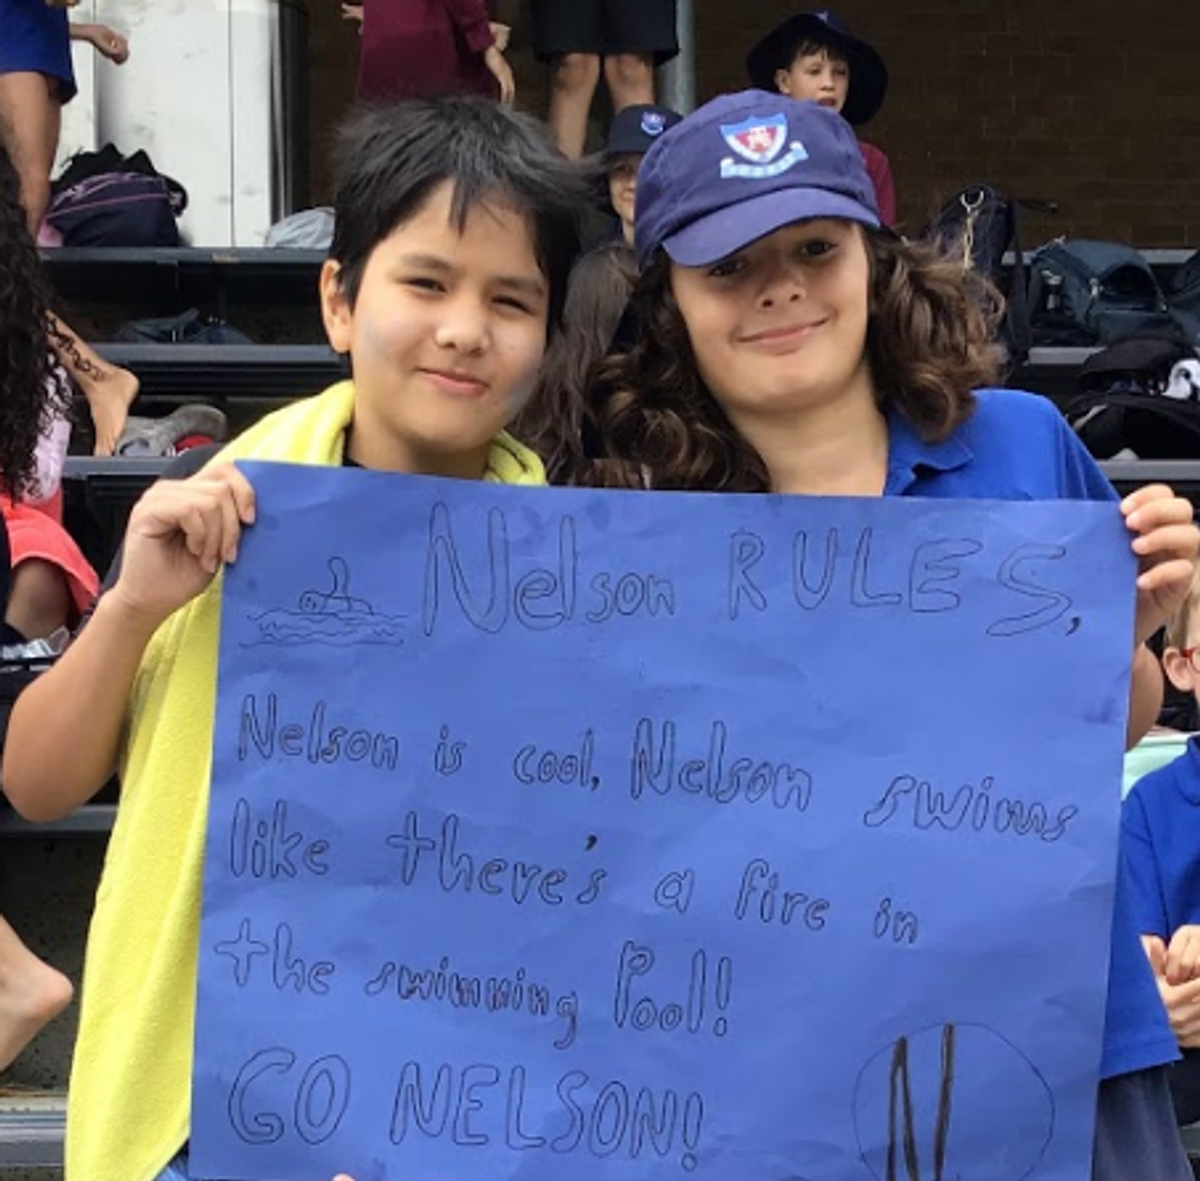 Nelson RULES,
Nelson is cool, Nelson swims
like there's a fire in
the swimming Pool!
GO NELSON!
N